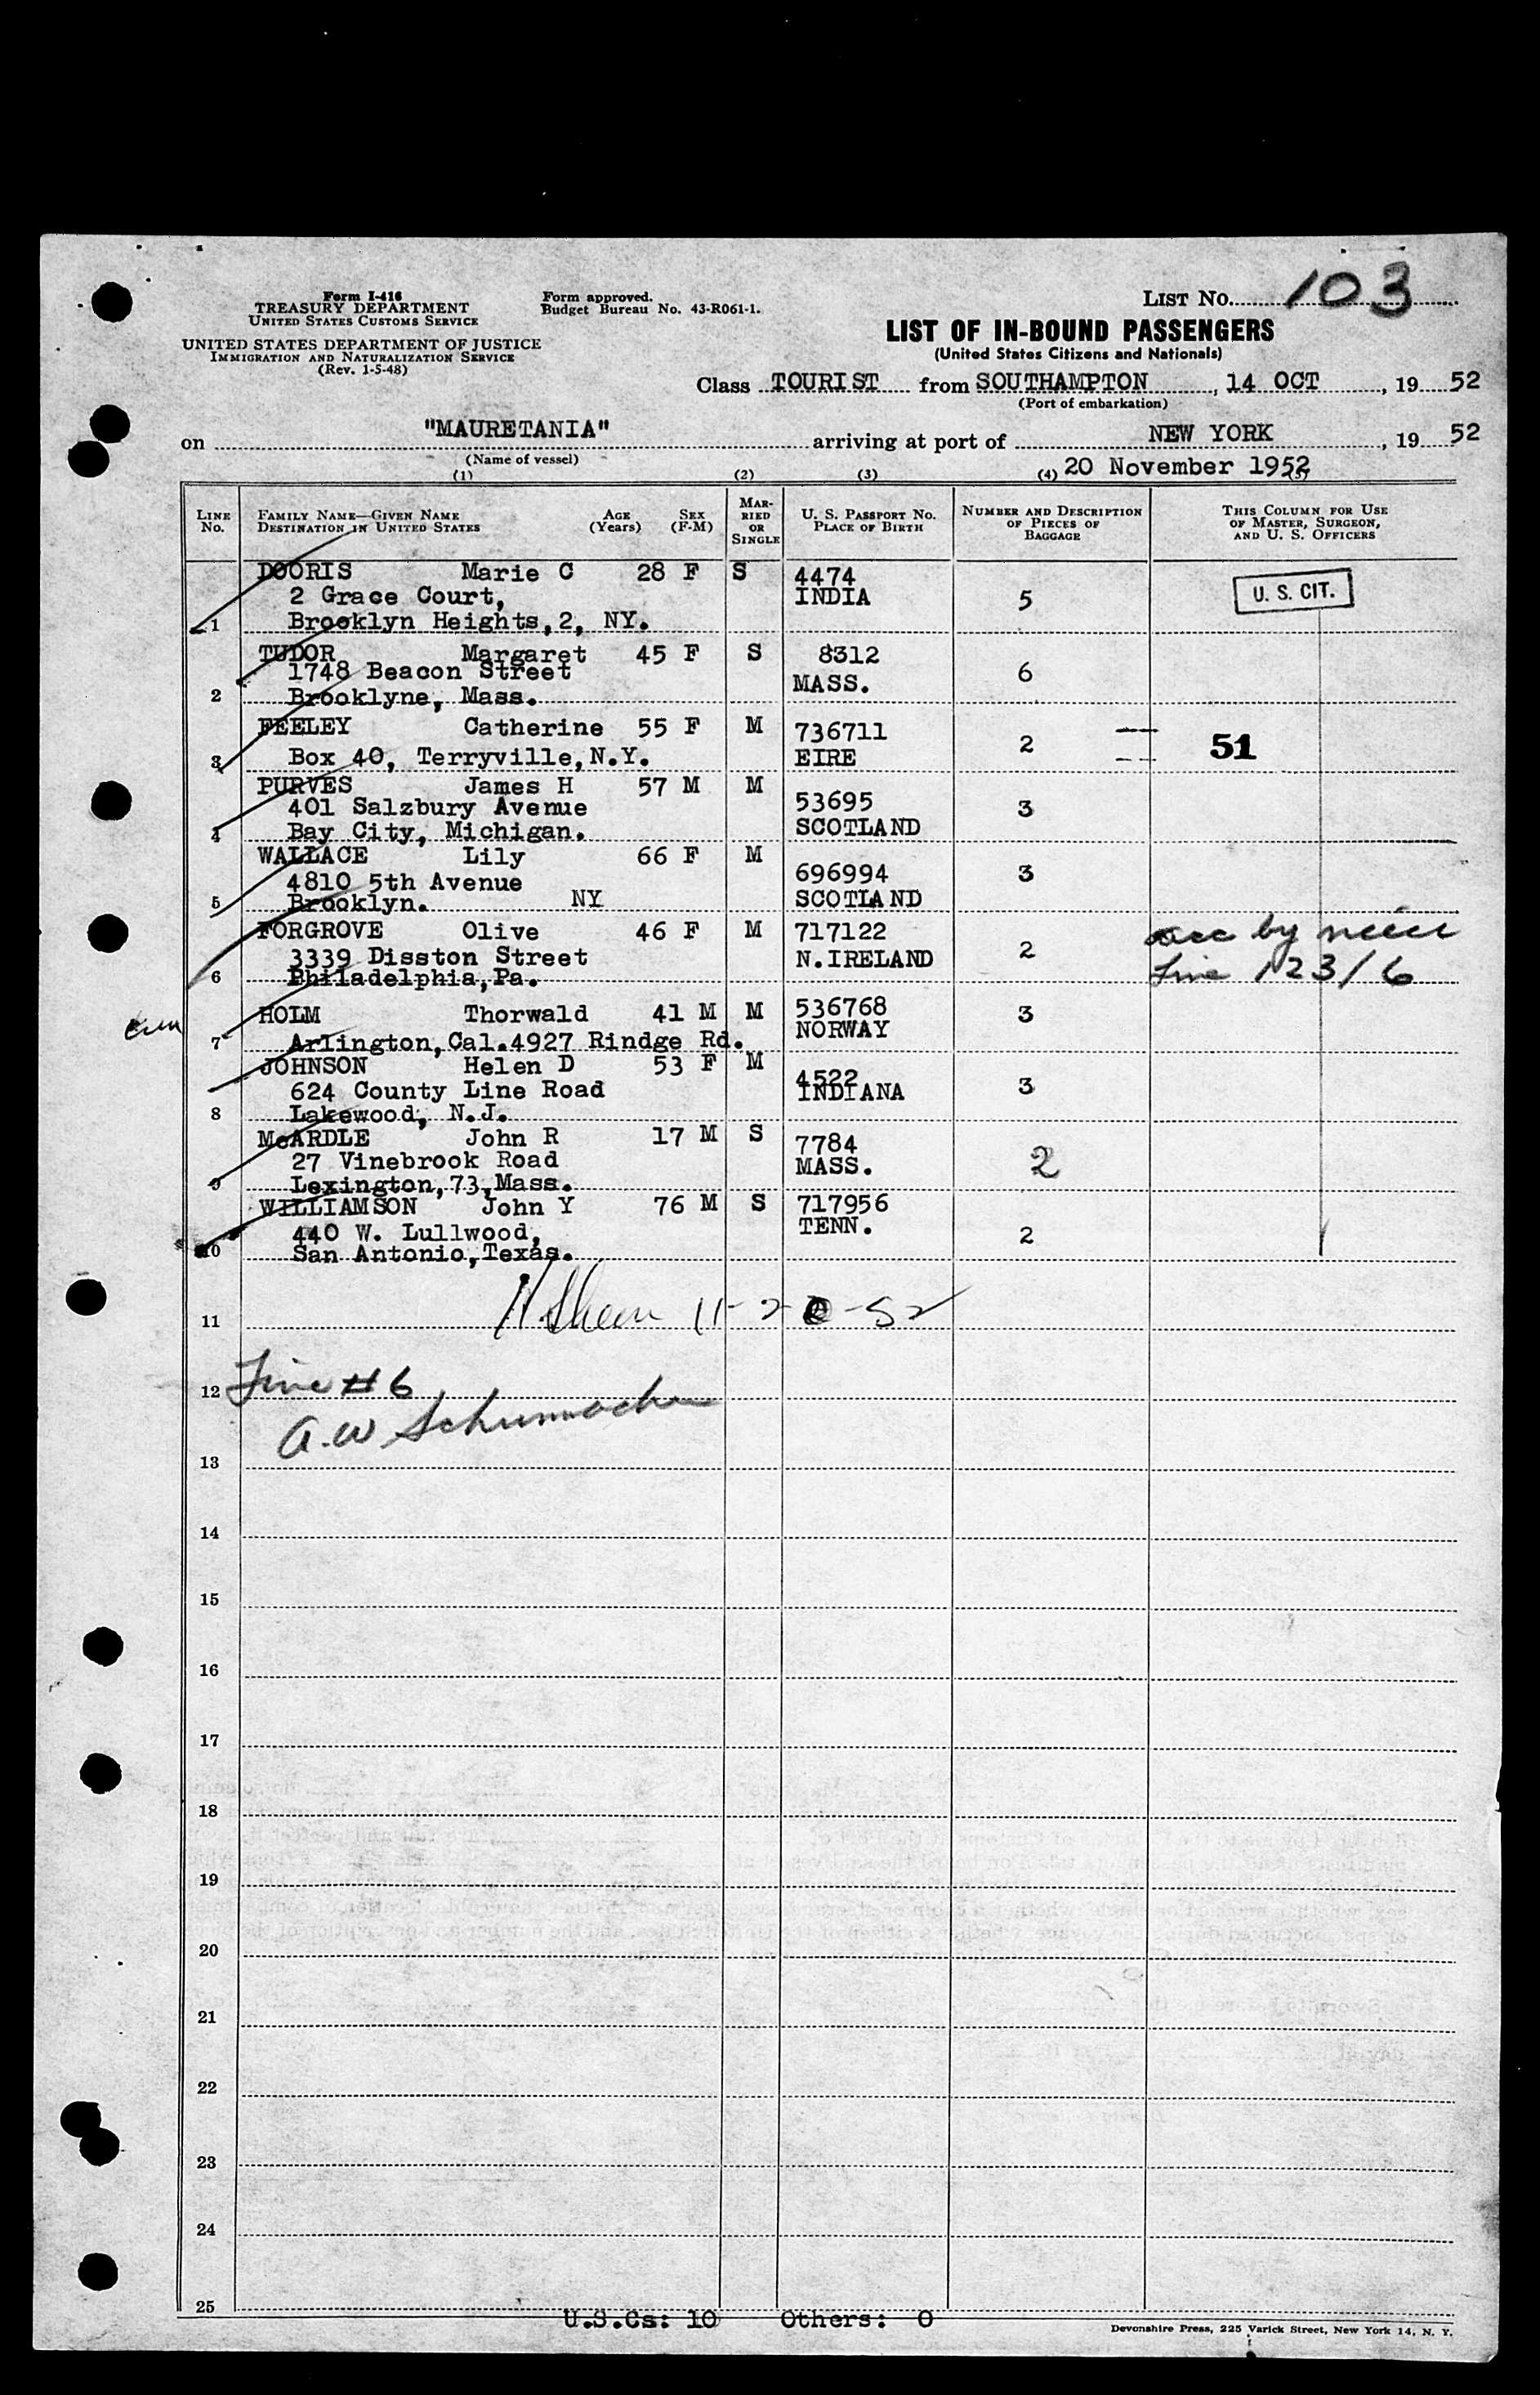 Form I-416
TREASURY DEPARTMENT
UNITED STATES CUSTOMS SERVICE
UNITED STATES DEPARTMENT OF JUSTICE
IMMIGRATION AND NATURALIZATION SERVICE
(Rev. 1-5-48)
Form approved.
Budget Bureau No. 43-R061-1.
LIST NO. 103
LIST OF IN-BOUND PASSENGERS
(United States Citizens and Nationals)
Class TOURIST from SOUTHAMPTON, 14 OCT, 19 52
(Port of embarkation)
on "MAURETANIA" arriving at port of NEW YORK, 19 52
(Name of vessel)
20 November 1952
(1) (2) (3) (4) (5)
LINE NO. FAMILY NAME—GIVEN NAME DESTINATION IN UNITED STATES AGE (Years) SEX (F-M) MARRIED OR SINGLE U. S. PASSPORT NO. PLACE OF BIRTH NUMBER AND DESCRIPTION OF PIECES OF BAGGAGE THIS COLUMN FOR USE OF MASTER, SURGEON, AND U. S. OFFICERS
DOORIS Marie C 28 F S 4474
2 Grace Court, INDIA 5 U. S. CIT.
1 Brooklyn Heights,2, NY.
TUDOR Margaret 45 F S 8312
1748 Beacon Street MASS. 6
2 Brooklyne, Mass.
FEELEY Catherine 55 F M 736711
3 Box 40, Terryville,N.Y. EIRE 2 51
PURVES James H 57 M M
401 Salzbury Avenue 53695 3
4 Bay City, Michigan. SCOTLAND
WALLACE Lily 66 F M
4810 5th Avenue 696994 3
5 Brooklyn. NY SCOTLAND
FORGROVE Olive 46 F M 717122
3339 Disston Street N.IRELAND 2
6 Philadelphia,Pa. 123/6
HOLM Thorwald 41 M M 536768 3
7 Arlington,Cal.4927 Rindge Rd. NORWAY
JOHNSON Helen D 53 F M 4522
624 County Line Road INDIANA 3
8 Lakewood, N.J.
McARDLE John R 17 M S 7784
27 Vinebrook Road MASS. 2
9 Lexington,73,Mass.
WILLIAMSON John Y 76 M S 717956
440 W. Lullwood, TENN. 2
10 San Antonio,Texas.
11 11-20-52
12 Line #6
A.W Schumacher
13
14
15
16
17
18
19
20
21
22
23
24
25
U.S.Cs: 10 Others: 0
Devonshire Press, 225 Varick Street, New York 14, N. Y.